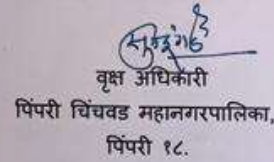 वृक्ष अधिकारी
पिंपरी चिंचवड महानगरपालिका,
पिंपरी १८.